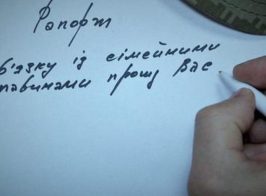 Рапорж
в'язку із сімейними
тавинами прошу Вас